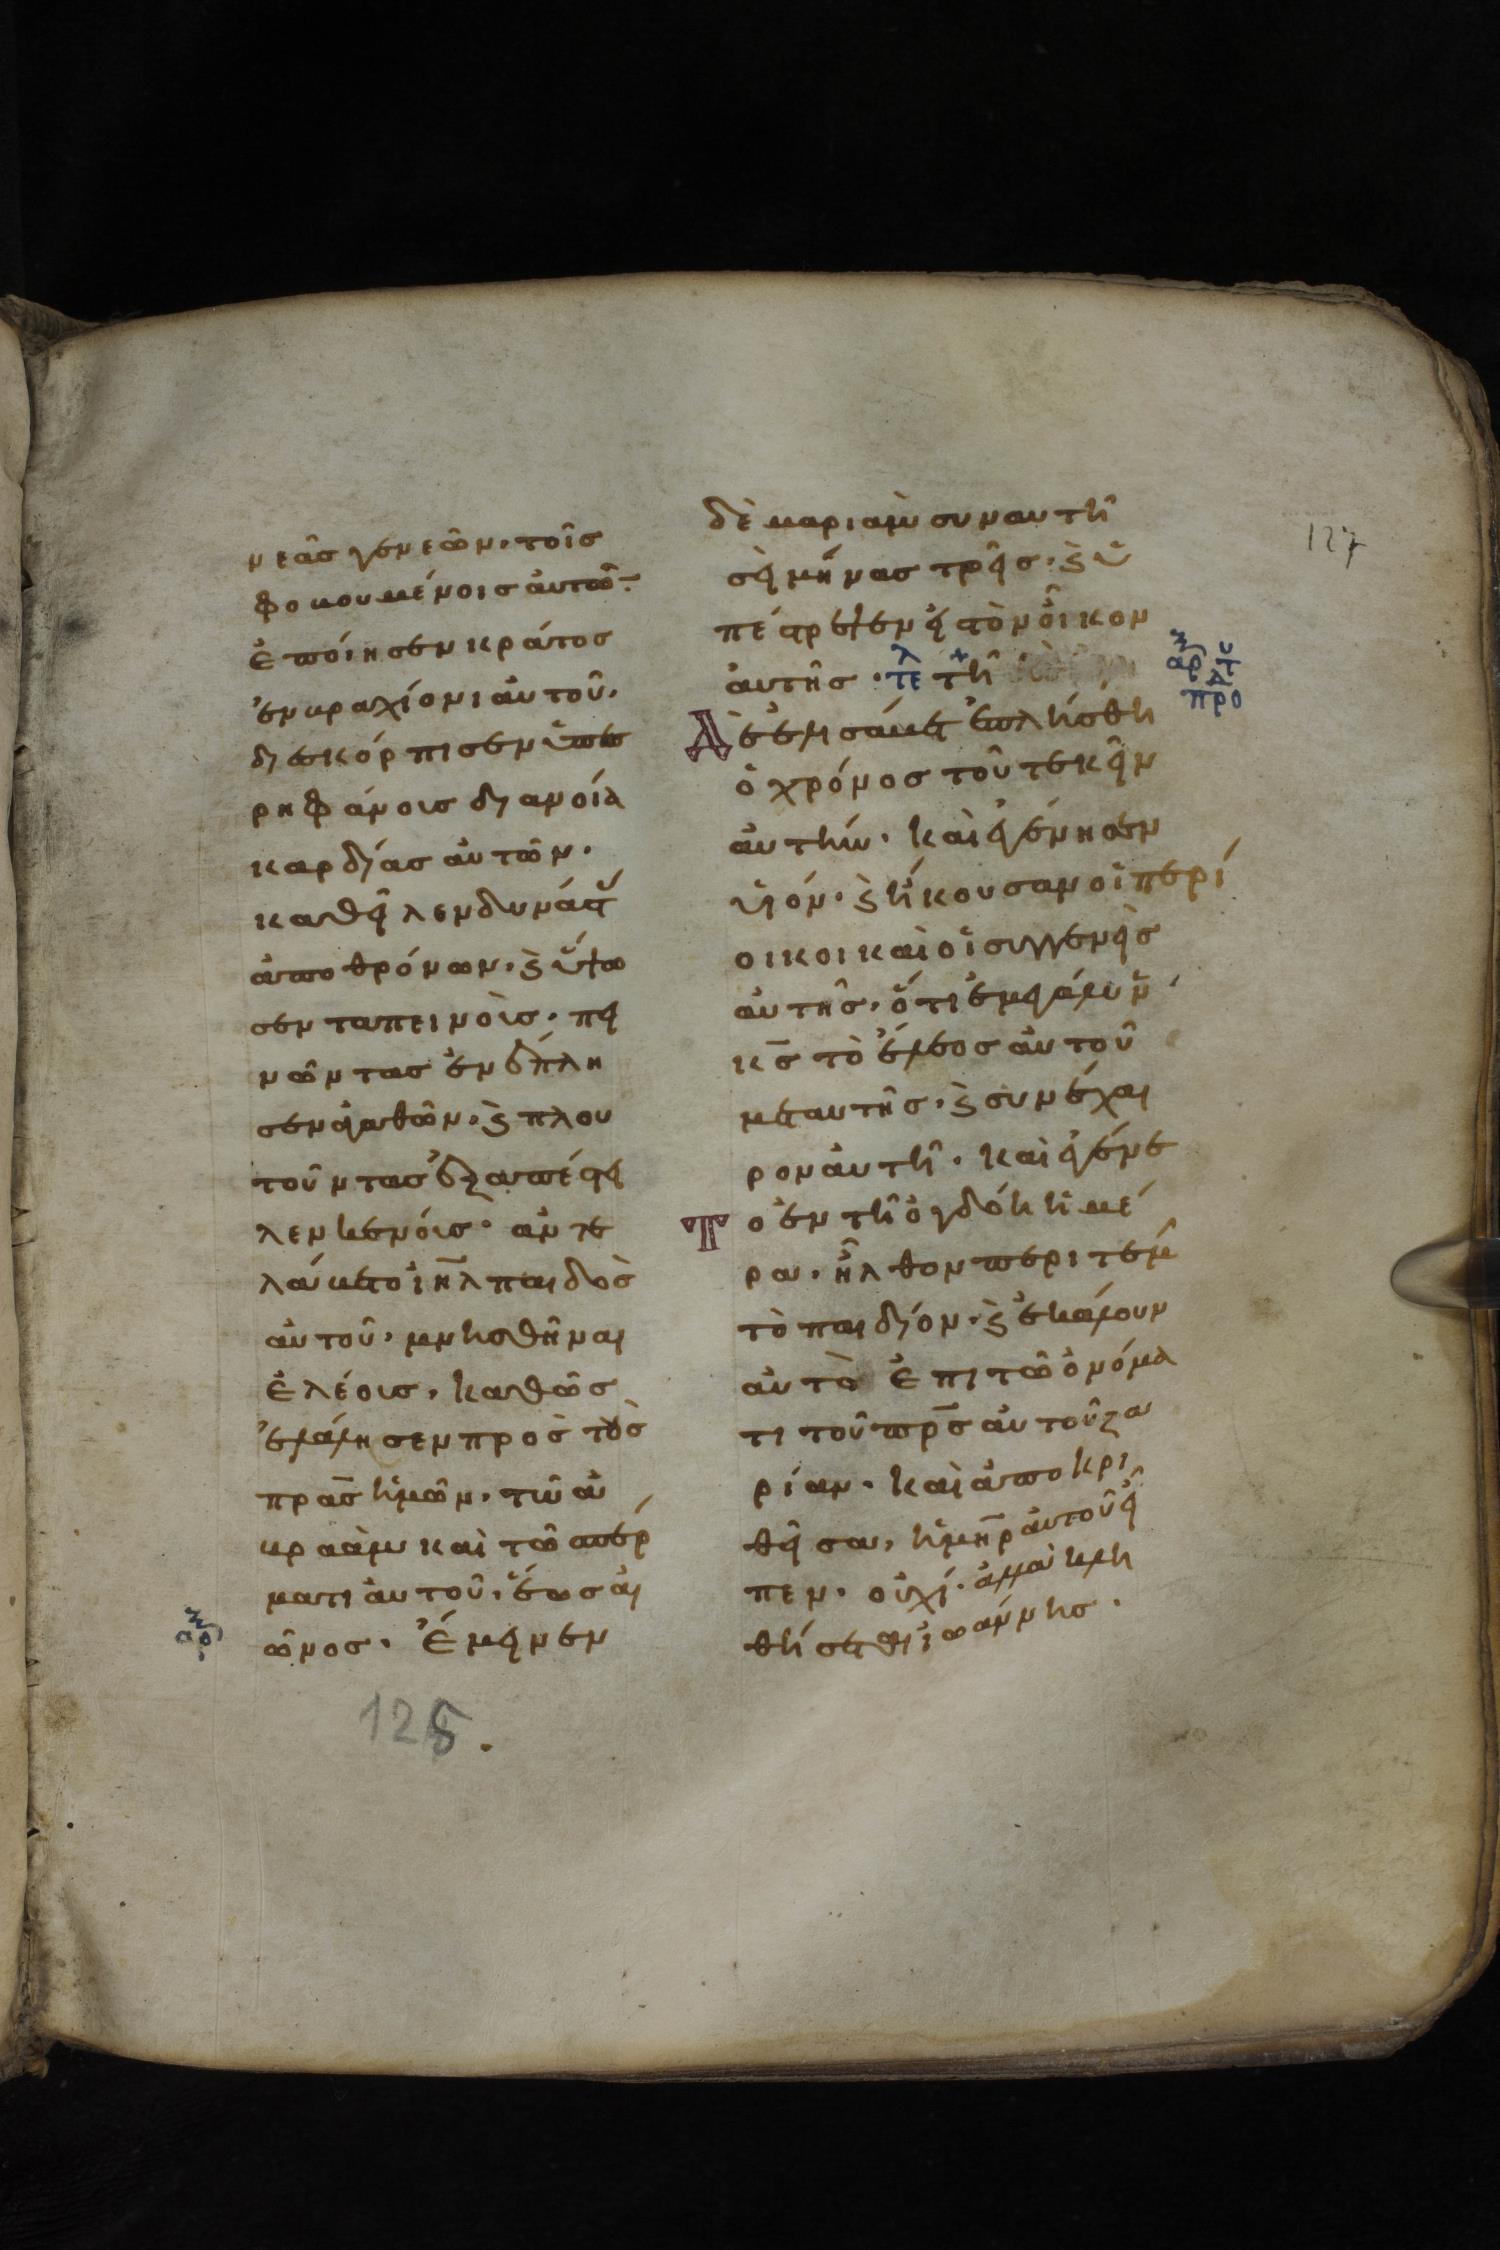 νεᾶσ γενεῶν· τοῖσ
φοβουμένοισ αὐτῶ·
ἐποίησεν κράτοσ
ἐν βραχίονι αὐτοῦ·
διεσκόρπισεν ὑπε
ρηφάνοισ διανοία
καρδίασ αὐτῶν·
καθεῖλεν δυνάστ
ἀπο θρόνων· ϗ ὕψω
σεν ταπεινοὺσ· πει
νῶντασ ἐνέπλη
σεν ἀγαθῶν· ϗ πλου
τοῦντασ ἐξαπέστει
λεν κενούσ· ἀντε
λάβετο ἰη̅λ παιδὸσ
αὐτοῦ· μνησθῆναι
ἐλέουσ· καθῶσ
ἐλάλησεν προσ τοὺσ
πρα̅σ ἡμῶν· τῶ ἀ
βραὰμ καὶ τῶ σπέρ
ματι αὐτοῦ· ἕωσ αἰ
ῶνοσ· Ἔμεινεν
αρ
δὲ μαριὰμ συν αυτῆ
σεὶ μῆνασ τρεῖσ· ϗ ὑ
πέστρεψεν εἰσ τὸν οἶκον
αὐτῆσ· τελ τῆ
αρ τ
προ
Δὲ ἐλισάβετ ἐπλήσθη
ὁ χρόνοσ τοῦ τεκεῖν
αὐτήν· καὶ ἐγέννησεν
υἱόν· ϗ ἤκουσαν οἱ περί
οικοι καὶ οἱ συγγενεὶσ
αὐτῆσ· ὅτι ἐμεγάλυν
κ̅σ τὸ ἔλεοσ αὐτοῦ
μεταυτῆσ· ϗ συνέχαι
ρον αὐτῆ· καὶ ἐγένε
Το ἐν τῆ ὀγδόη ἡμέ
ρα· ἦλθον περιτεμεῖ
τὸ παιδίον· ϗ ἐκάλουν
αὐτὸ ἐπι τῶ ὀνόμα
τι τοῦ πρ̅σ αὐτοῦ ζα
ρίαν· καὶ ἀποκρι
θεῖσα· ἡ μη̅ρ αὐτοῦ εἶ
πεν· οὐχί· ἀλλὰ κλη
θήσεται ἰωάννησ·
127
128.